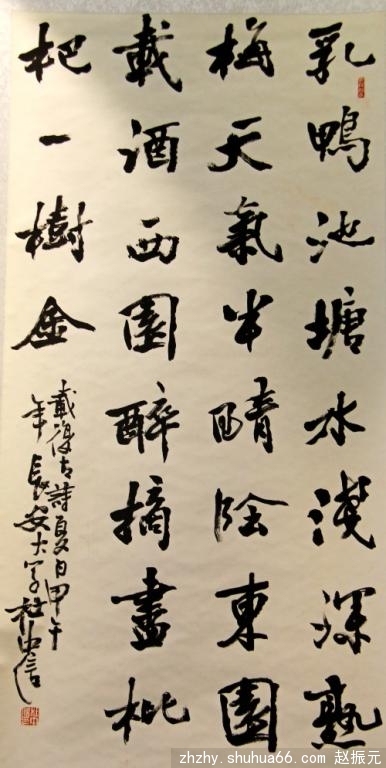 乳鴨池塘水淺深熟
梅天氣半晴陰東園
載酒西園醉摘盡枇
杷一樹金
戴復古詩夏日甲午
年長安大学杜中信
zhzhy.shuhua66.com 赵振元